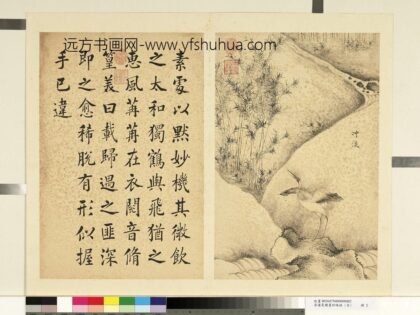 远方书画网-www.yfshuhua.com
素處以默妙機其微飲
之太和獨鶴與飛猶之
惠風荏苒在衣閱音脩
篁美曰載歸遇之匪深
即之愈稀脫有形似握
手已違
沖淡